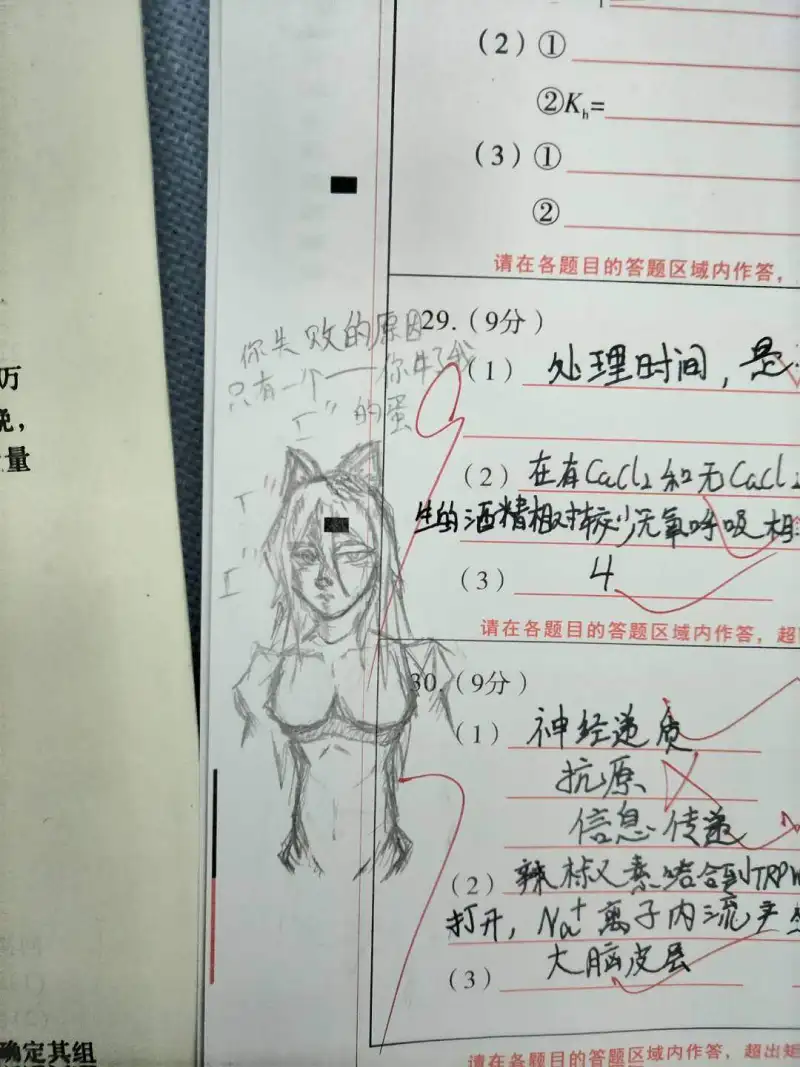 (2) ①
②Kh=
(3) ①
②
请在各题目的答题区域内作答，
你失败的原因
只有一个——你牛了我
的蛋
29.（9分）
(1) 处理时间，是
(2) 在有CaCl2和无CaCl2
生的酒精相对较少无氧呼吸相
(3) 4
请在各题目的答题区域内作答，超
30.（9分）
(1) 神经递质
抗原
信息传递
(2) 辣椒素结合到TRP
打开，Na+离子内流产
(3) 大脑皮层
请在各题目的答题区域内作答，超出矩
万
晚，
量
确定其组